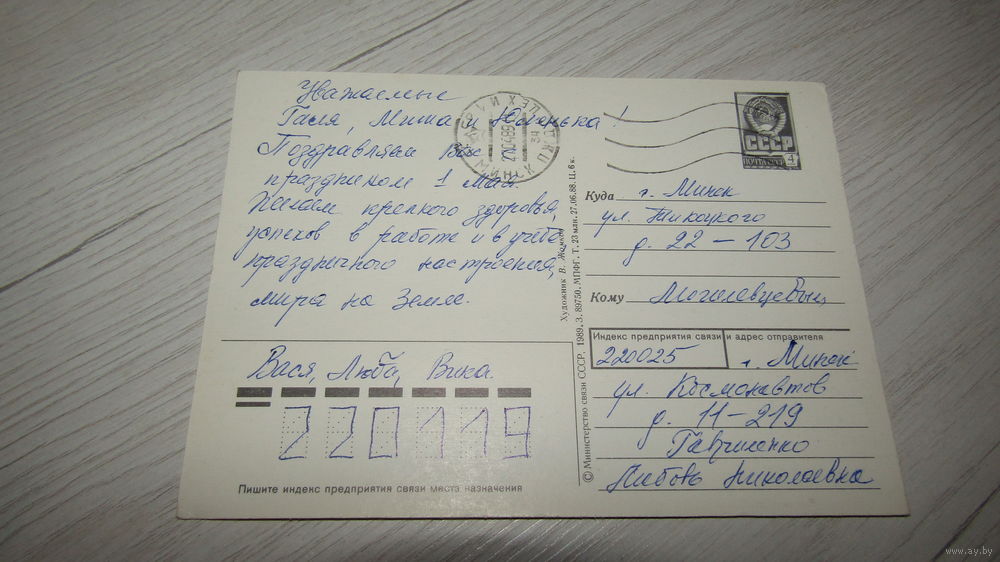 Уважаемые
Галя, Миша и Юленька!
Поздравляем Вас с
праздником 1 Мая.
Желаем крепкого здоровья,
успехов в работе и в учебе,
праздничного настроения,
мира на Земле.
Вася, Люба, Вика.
220119
Пишите индекс предприятия связи места назначения
МИНСК
СССР
ПОЧТА СССР
4
Куда г. Минск
ул. Тикоцкого
д. 22 – 103
Кому
Индекс предприятия связи и адрес отправителя
220025 г. Минск
ул. Космонавтов
д. 11 – 219
Любовь Николаевна
Художник В.
© Министерство связи СССР. 1989. З. 89750. МПФГ. Т. 23 млн. 27.06.88. Ц. 6 к.
www.ay.by